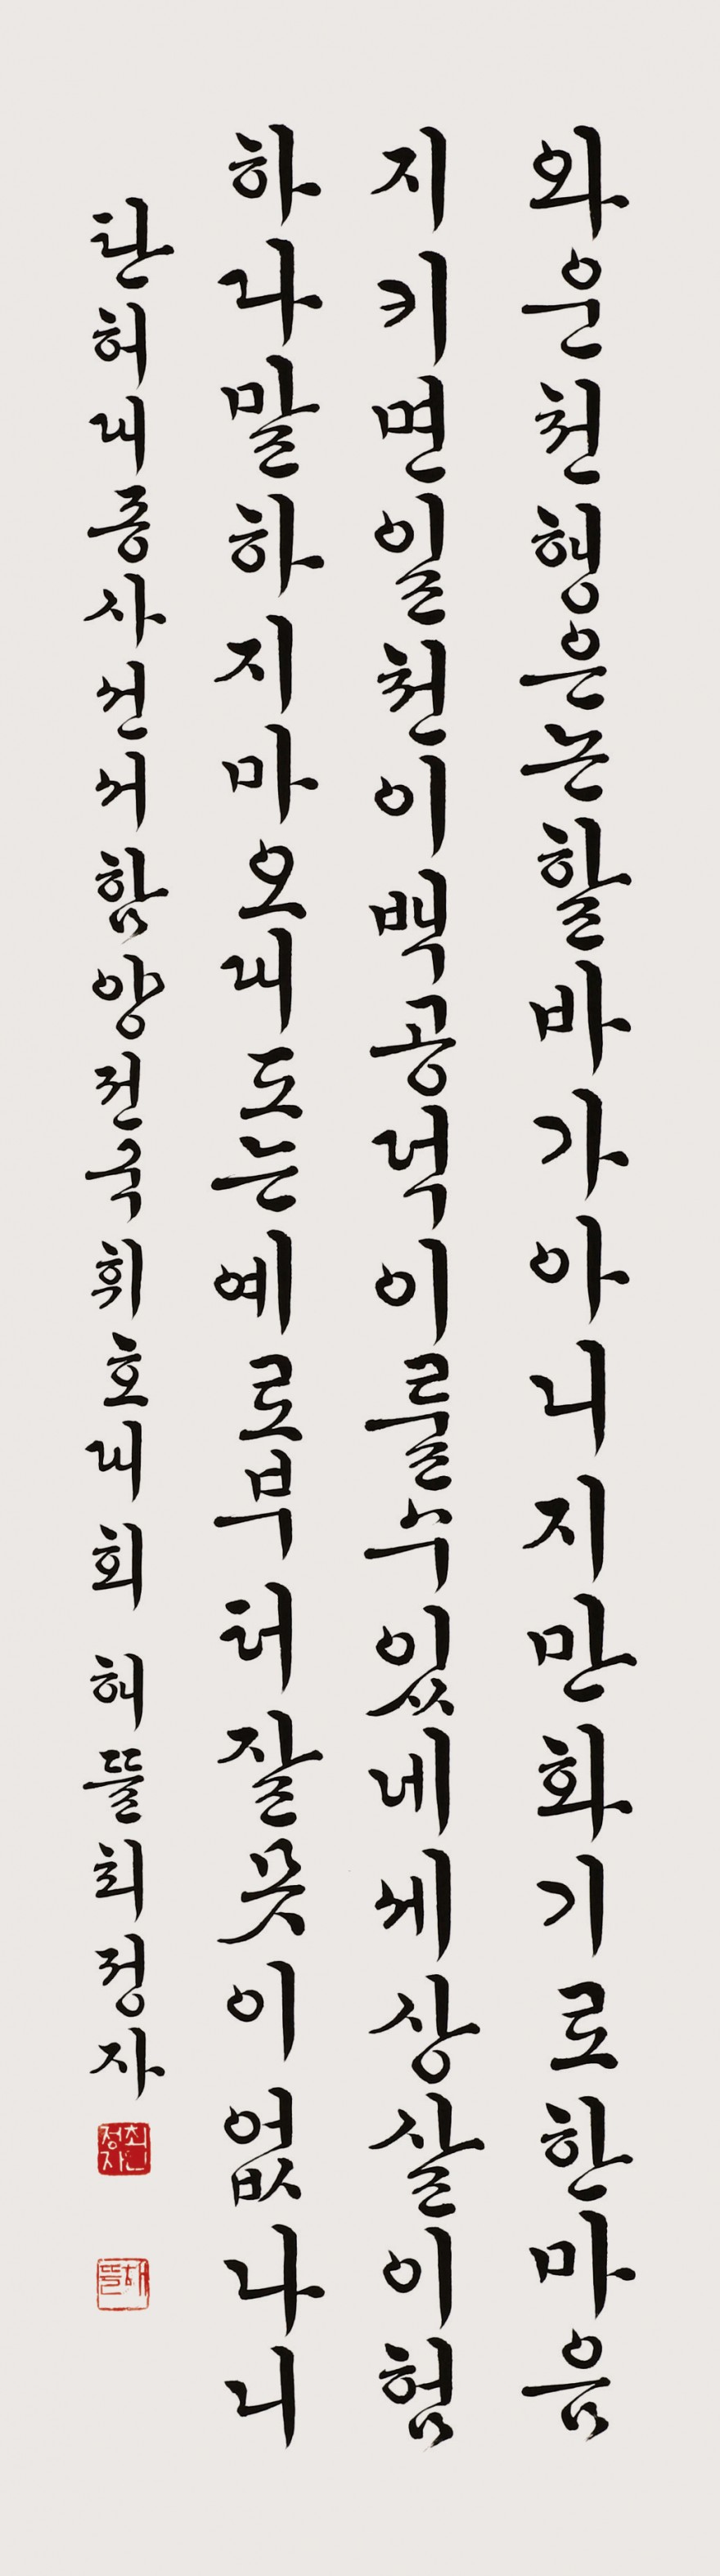 와운천형은논할바가아니지만화기로한마음
지키면일천이백공덕이룰수있네세상살이험
하나말하지마오대도는예로부터잘못이없나니
탄허대종사선서함양전국휘호대회 해뜰최정자
최정자
해뜰